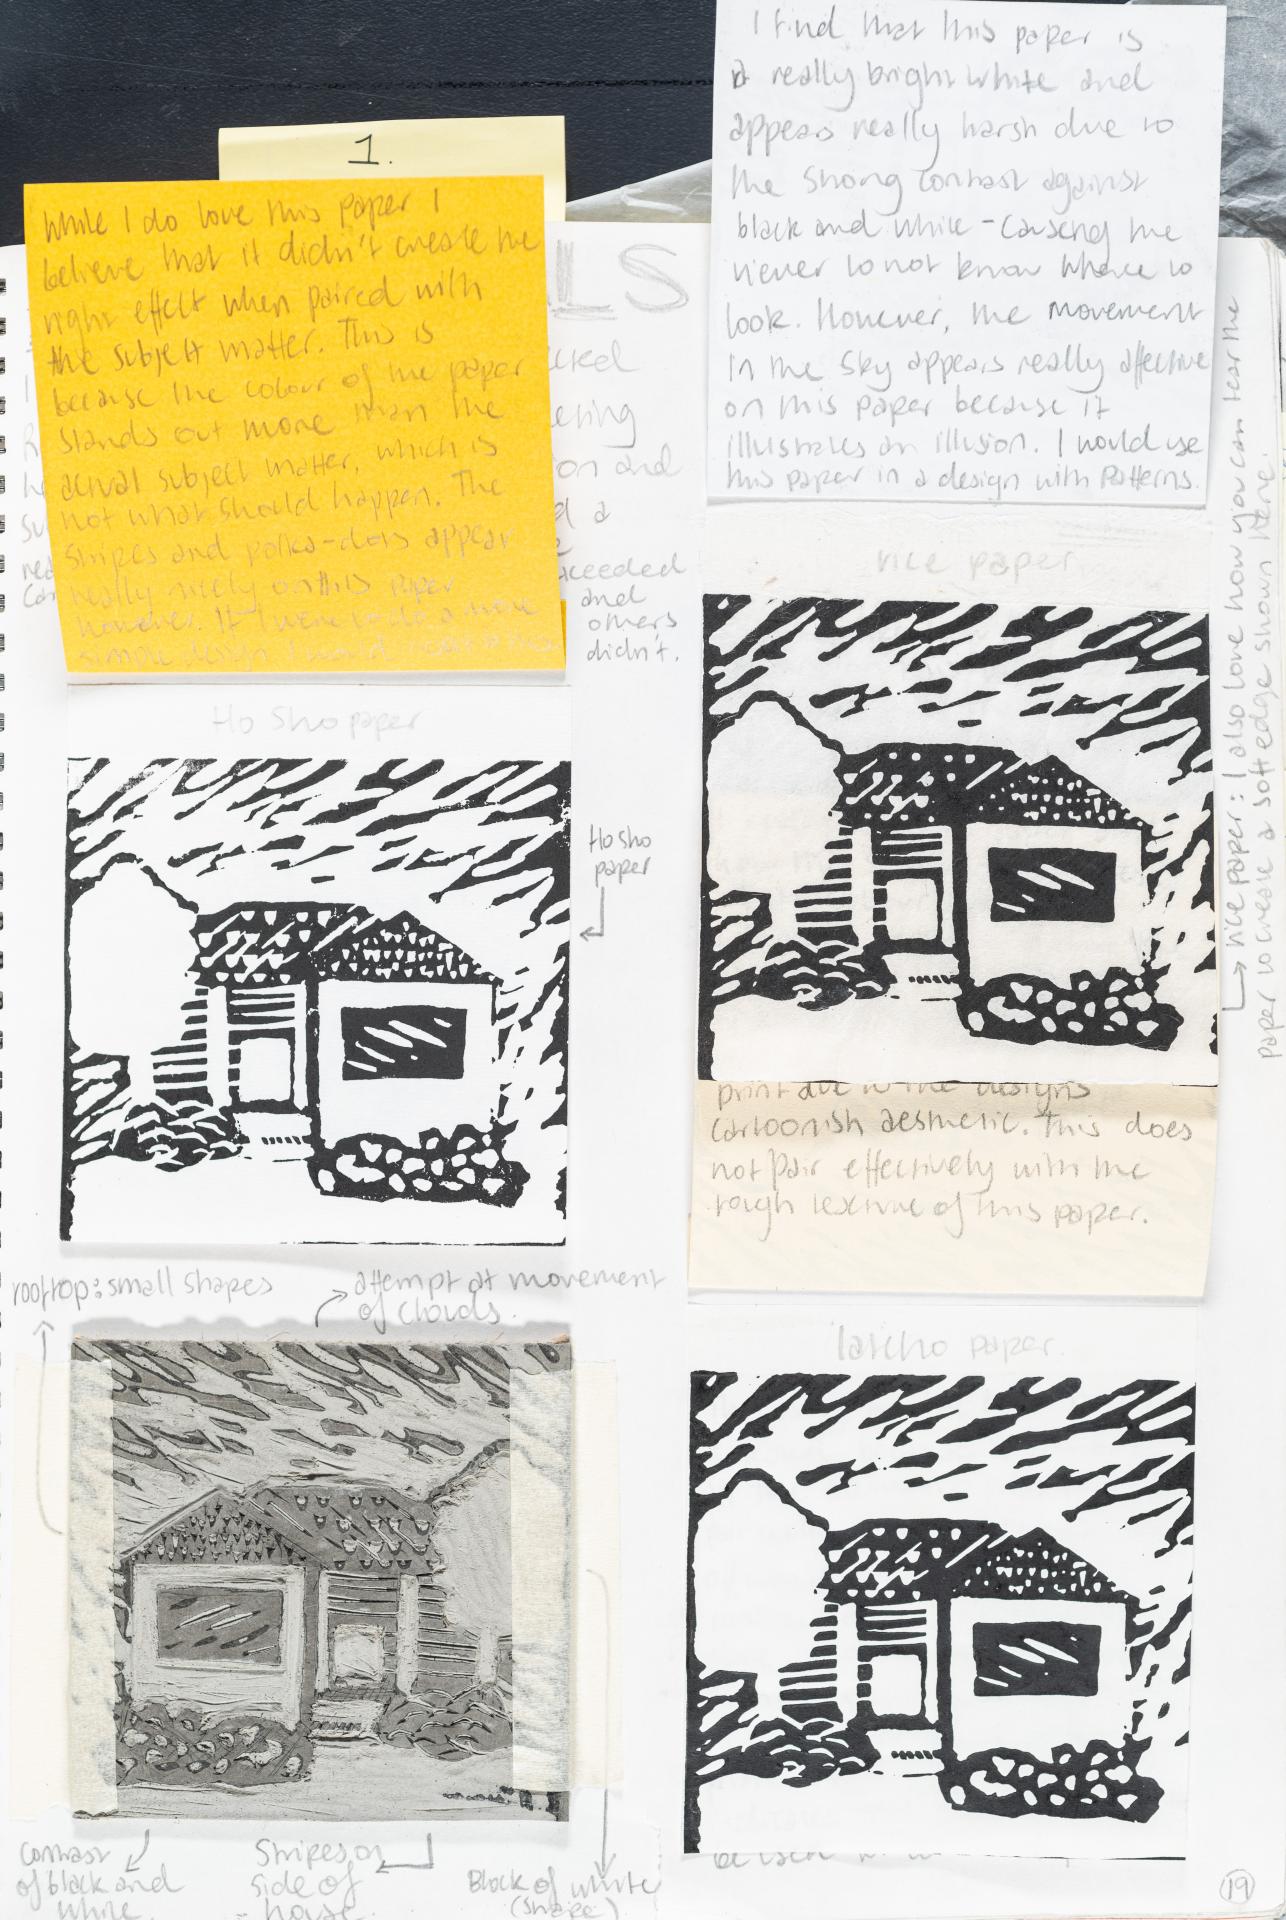 1.
While I do love this paper I
believe that it didn't create the
right effect when paired with
the subject matter. This is
because the colour of the paper
stands out more than the
actual subject matter, which is
not what should happen. The
stripes and polka-dots appear
really nicely on this paper
however. If I were to do a more
simple design I would
LS
and
on and
a
ceeded
and
others
didn't.
I find that this paper is
a really bright white and
appears really harsh due to
the strong contrast against
black and white - causing the
viewer to not know where to
look. However, the movement
in the sky appears really affective
on this paper because it
illustrates an illusion. I would use
this paper in a design with Patterns.
rice paper
rice paper: I also love how you can tear the
paper to create a soft edge shown here.
Ho Sho paper
Ho sho
paper
print due to the designs
cartoonish aesthetic. This does
not pair effectively with the
rough texture of this paper.
rooftop: small shapes
attempt at movement
of clouds.
paper.
Contrast
of black and
white.
Stripes on
side of
house.
Block of white
(shape)
19